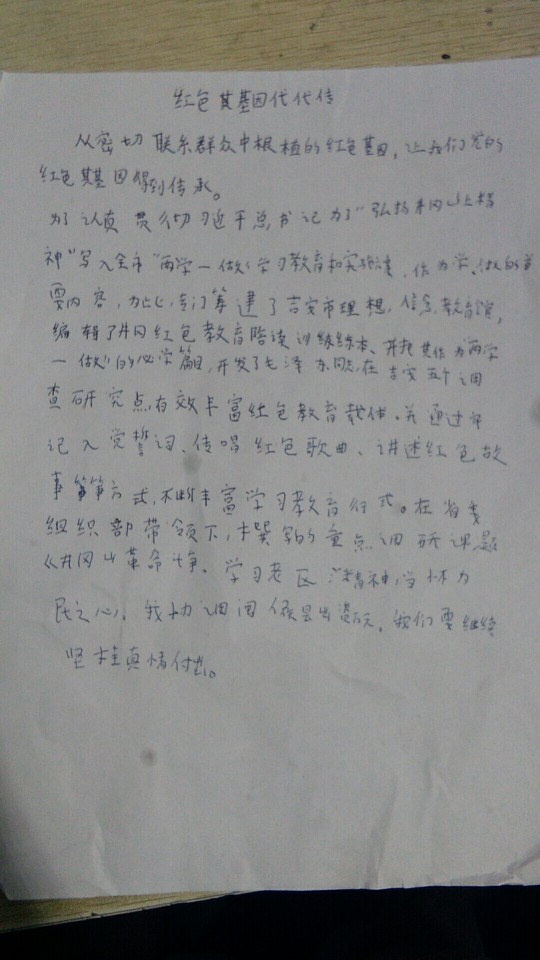 红色其基因代代传
从密切联系群众中根植的红色基因,让我们党的
红色其基因得到传承。
为了认真贯彻习近平总书记为了“弘扬井冈山精
神”写入全市“两学一做”学习教育和实践课,作为学、做的首
要内容,为此,专门筹建了吉安市理想、信念、教育馆,
编辑了井冈红色教育陪读训练练本、并把其作为两学
一做”的必学篇目,开发了毛泽东同志在吉安五个调
查研究点,有效丰富红色教育载体。并通过
记入党誓词、传唱红色歌曲、讲述红色故
事等方式,不断丰富学习教育形式。在省委
组织部带领下,撰写的重点调研课题
《井冈山革命斗争。学习老区精神,当林为
民之心,我协调
我们要继续
坚 真情付出。